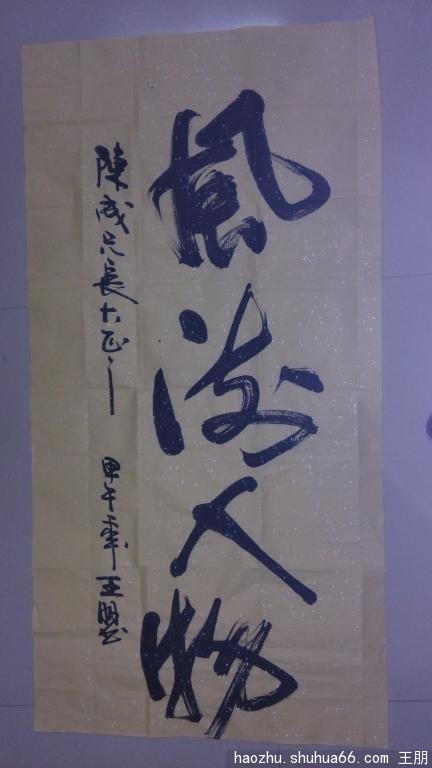 風流人物
陳成兄長大正之
甲午年王朋書
haozhu.shuhua66.com 王朋